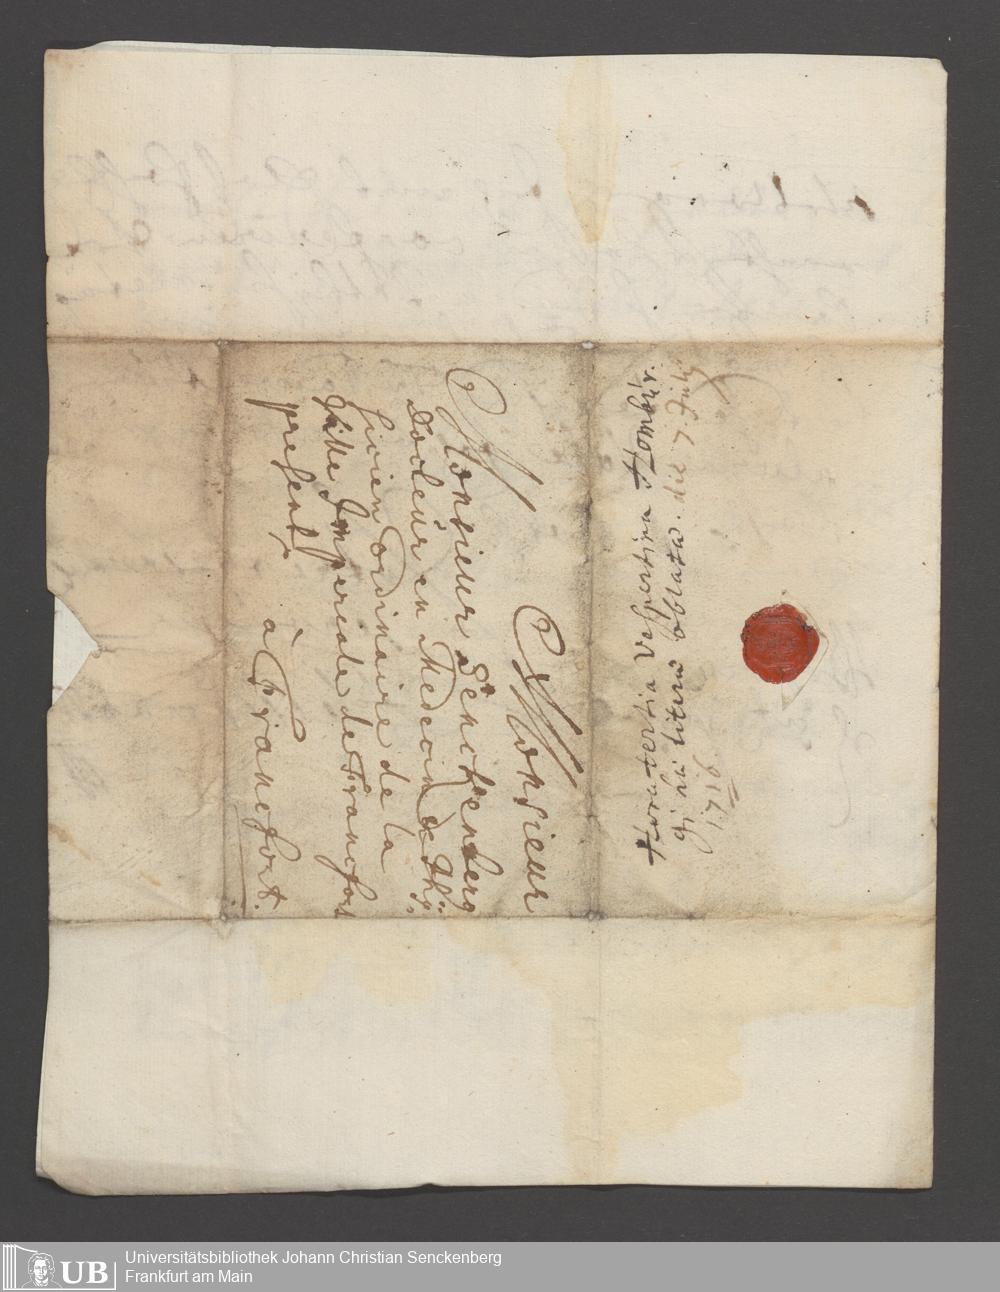 Monsieur
Monsieur Senckenberg
Docteur en Medecin et Phÿ-
sicien ordinaire de la
Ville Imperiale de Francfort
present
à Francfort.
Hora tertia Vespertina Hombur
gi hae literae oblatae. die 7 July
1716.
Universitätsbibliothek Johann Christian Senckenberg
Frankfurt am Main
UB